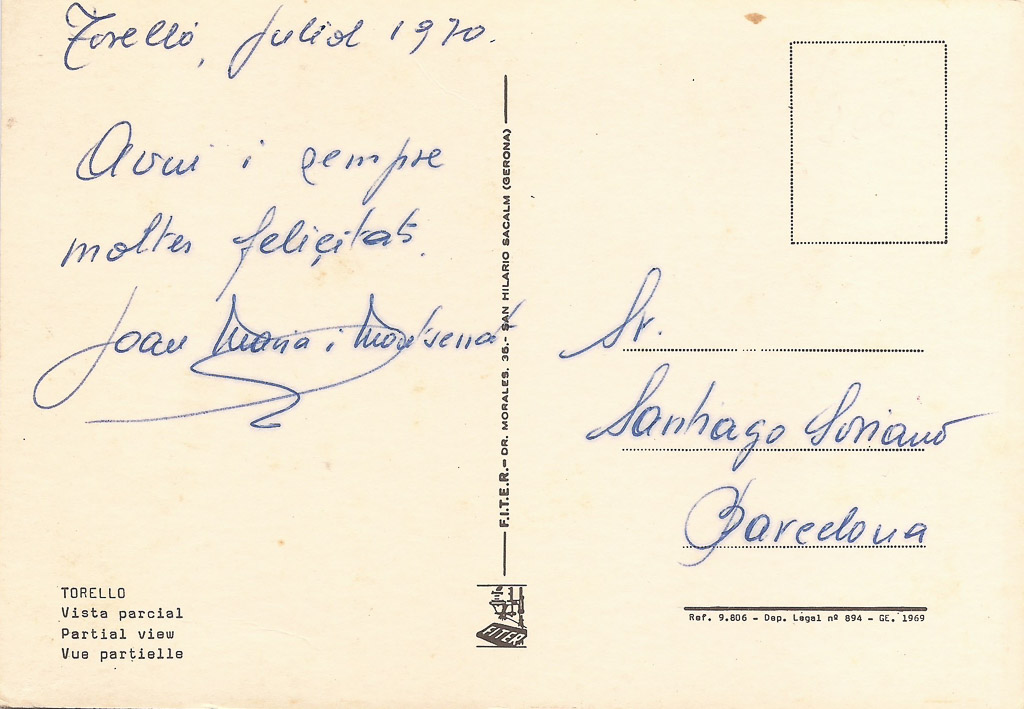 Torelló, Juliol 1970.
Avui i sempre
moltes felicitats.
Joan Maria i Montserrat
Sr.
Santiago Soriano
Barcelona
F.I.T.E.R.- DR. MORALES, 35.- SAN HILARIO SACALM (GERONA)
TORELLO
Vista parcial
Partial view
Vue partielle
FITER
Ref. 9.806 - Dep. Legal nº 894 - GE. 1969